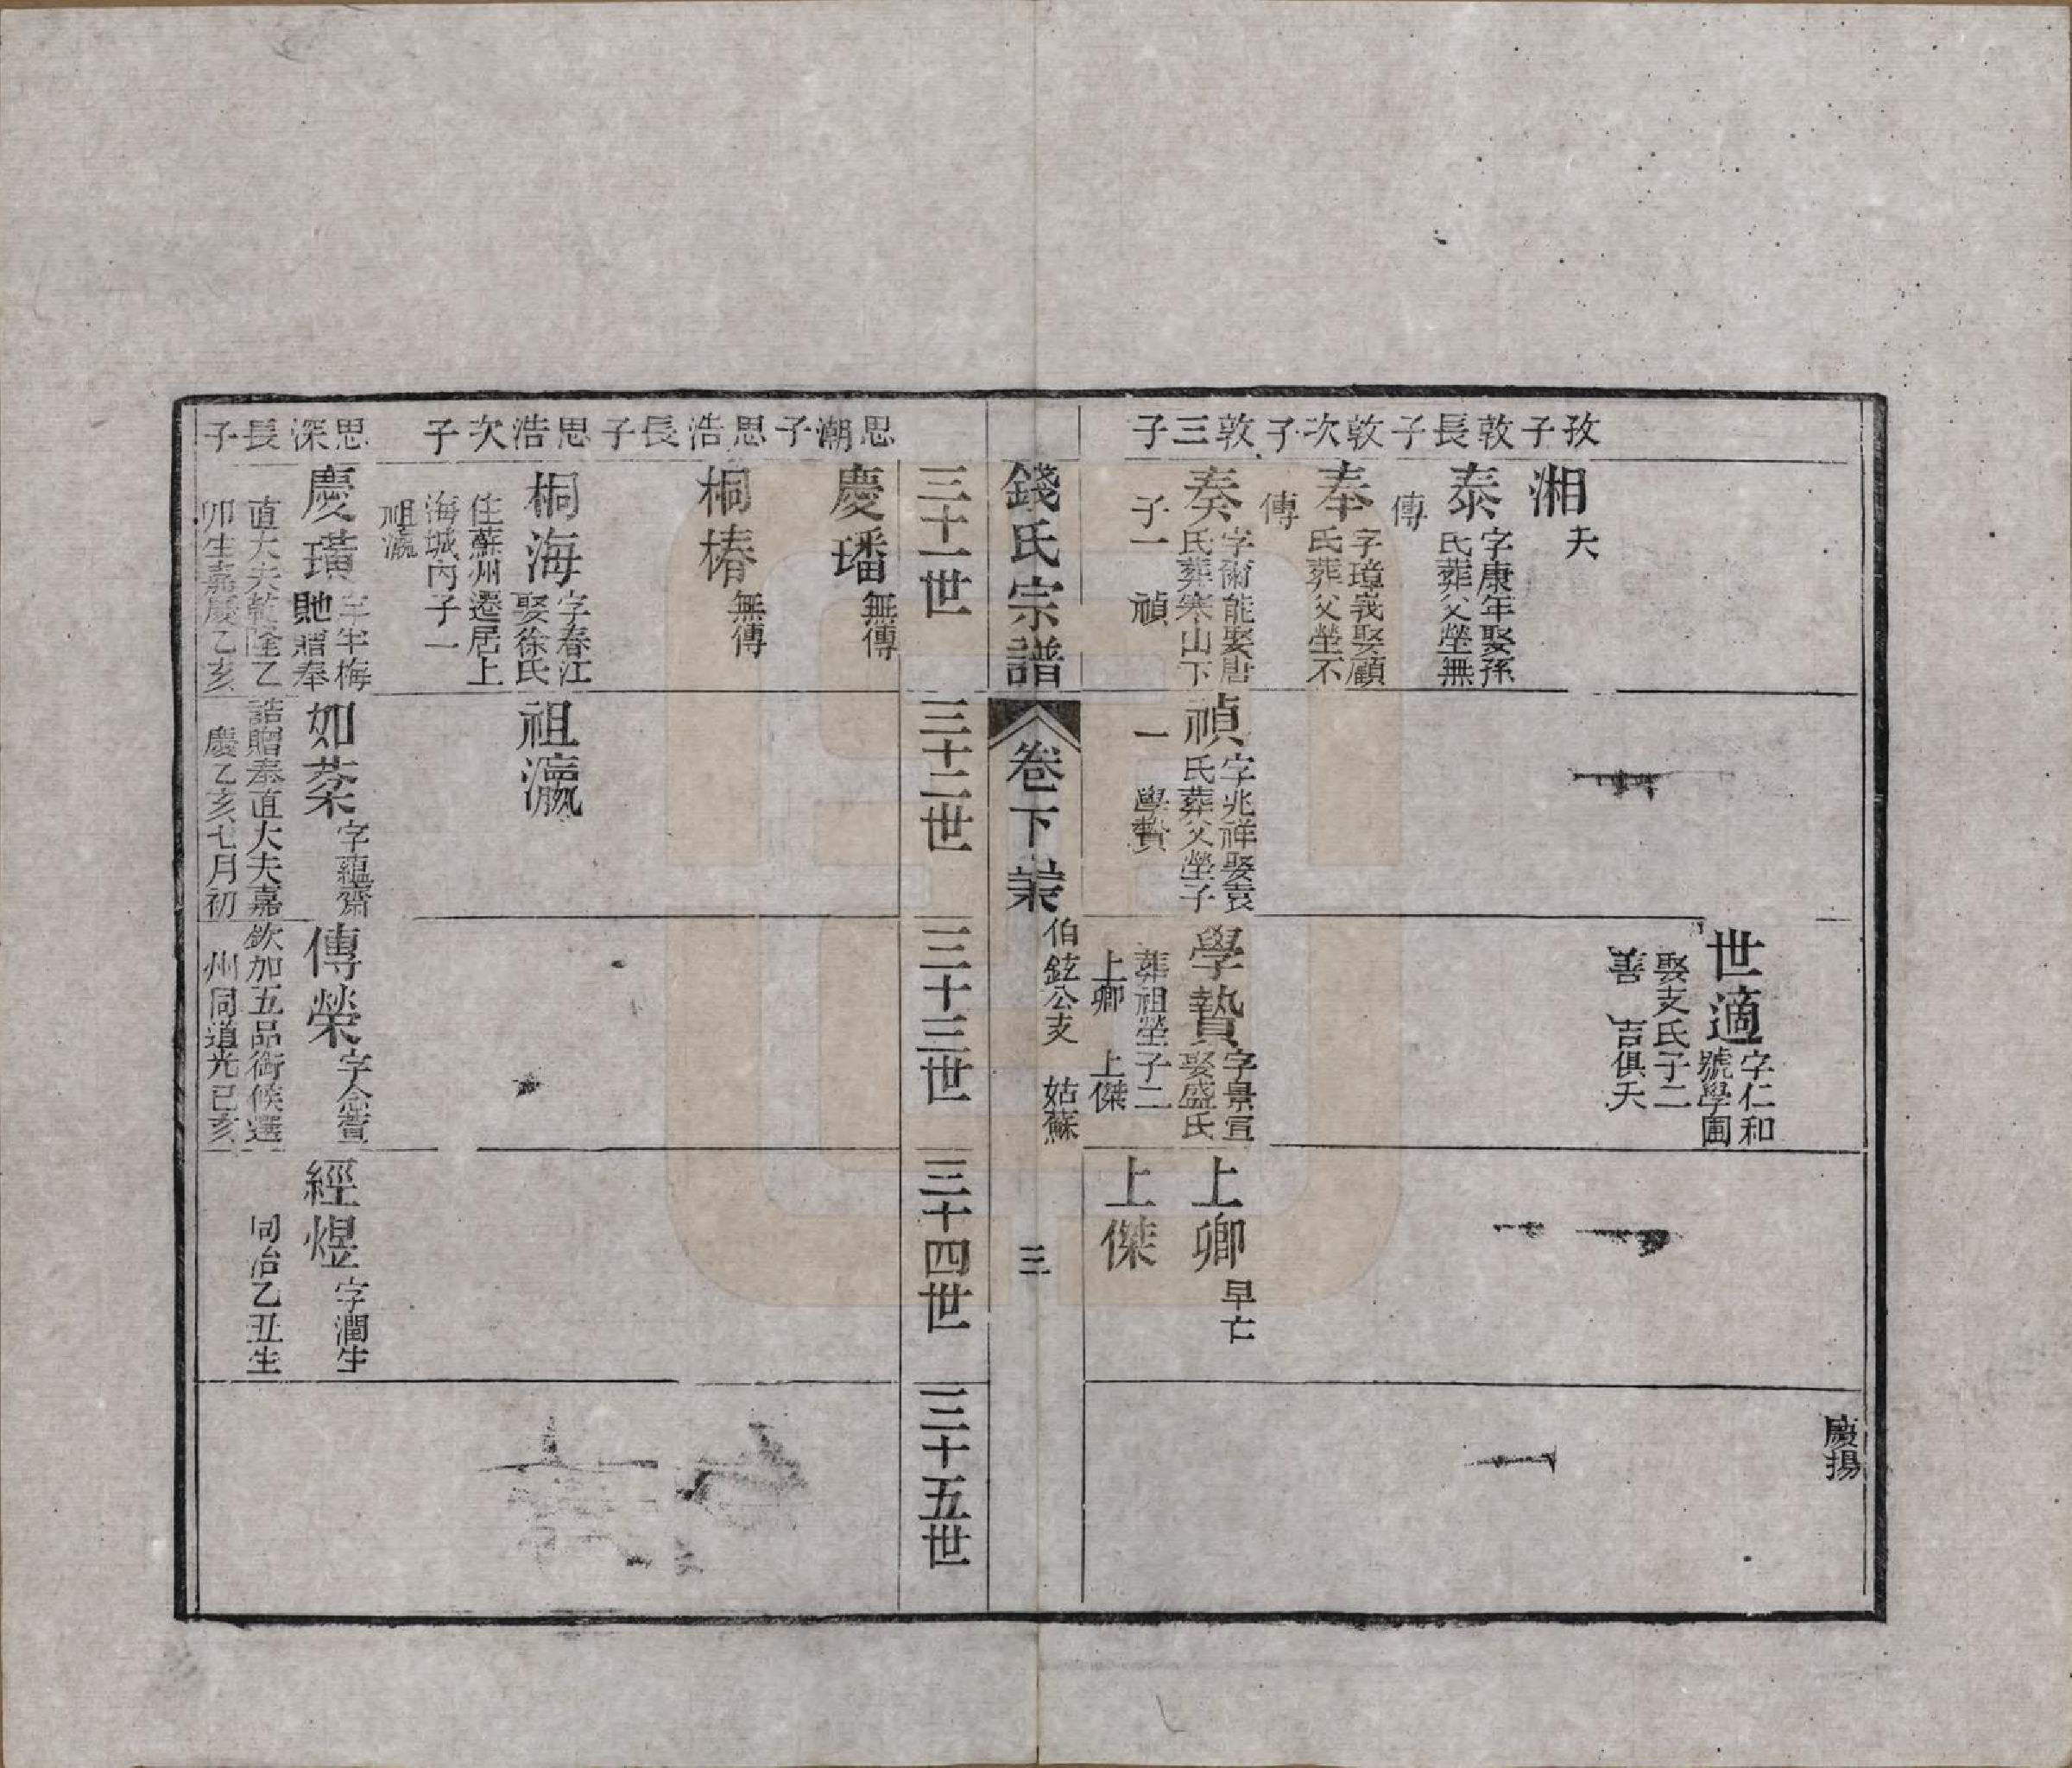 慶揚
世適
字仁和
號學圃
娶支氏子二
善 吉俱夭
孜子
湘
夭
敦長子
泰
字康年娶孫
氏葬父塋無
傳
敦次子
奉
字璋峩娶顧
氏葬父塋不
傳
敦三子
奏
字爾能娶唐
氏葬寒山下
子一 禎
禎
字兆祥娶袁
氏葬父塋子
一 學贄
學贄
字景宣
娶盛氏
葬祖塋子二
上卿 上傑
上卿
早亡
上傑
錢氏宗譜
卷下
伯鉉公支 姑蘇
三
三十一世
三十二世
三十三世
三十四世
三十五世
思潮子
慶璠
無傳
思浩長子
桐椿
無傳
思浩次子
桐海
字春江
娶徐氏
住蘇州遷居上
海城內子一
祖瀛
祖瀛
思深長子
慶璜
字半梅
貤贈奉
直大夫乾隆乙
卯生嘉慶乙亥
如棻
字蘊齋
誥贈奉直大夫嘉
慶乙亥七月初
傳榮
字念萱
欽加五品銜候選
州同道光己亥
經煜
字潤生
同治乙丑生